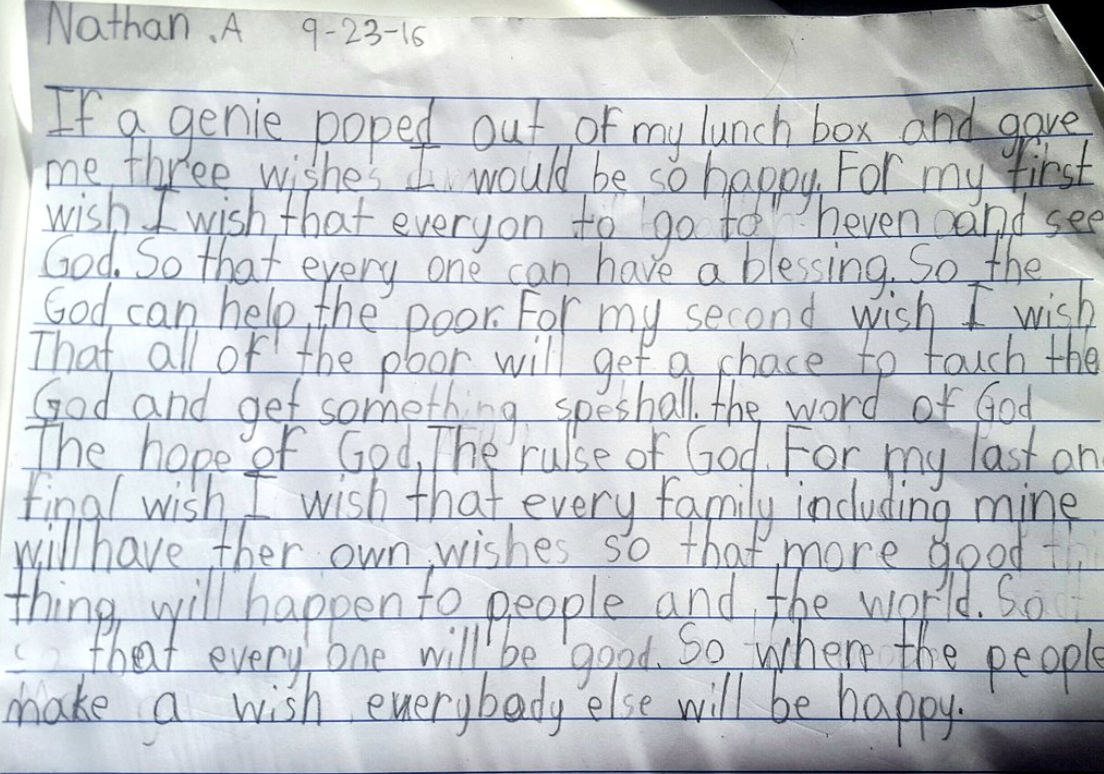 Nathan .A 9-23-16
If a genie poped out of my lunch box and gave
me three wishes I would be so happy. For my first
wish I wish that everyon to go to heven and see
God. So that every one can have a blessing. So the
God can help the poor. For my second wish I wish
That all of the poor will get a chace to tauch the
God and get something speshall. the word of God
The hope of God, The rulse of God. For my last an
final wish I wish that every family including mine
will have ther own wishes so that more good
thing will happen to people and the world. So
that every one will be good. So when the people
make a wish everybody else will be happy.